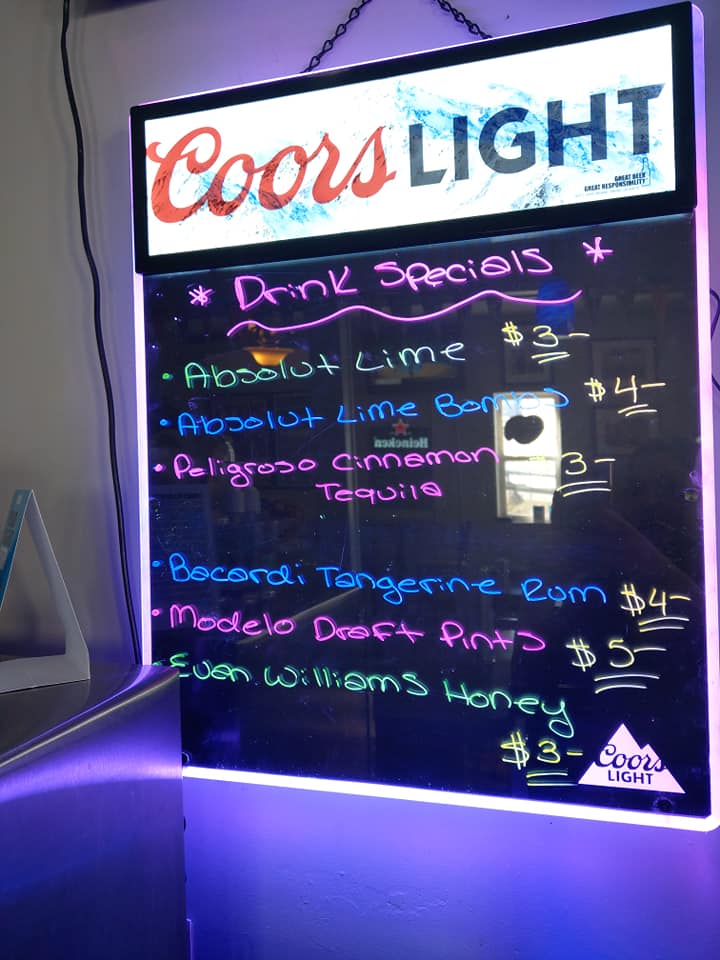 Coors LIGHT
GREAT BEER
GREAT RESPONSIBILITY
* Drink Specials *
• Absolut Lime $3-
• Absolut Lime Bombs $4-
• Peligroso Cinnamon 3-
Tequila
• Bacardi Tangerine Rum $4-
• Modelo Draft Pints $5-
• Evan Williams Honey
$3-
Coors
LIGHT
Heineken